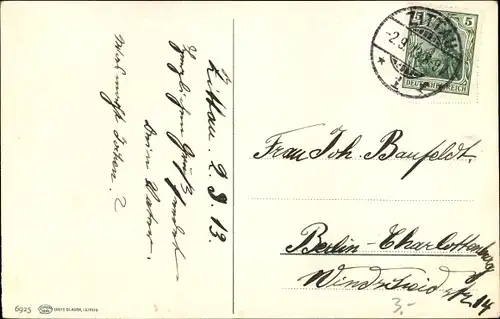 Zittau. 2.9.13.
Herzlichen Gruß sendet
Dein Vater.
Was macht Ietchen?
ZITTAU
-2.9.13
* 1
5 5
DEUTSCHES REICH
Frau Joh. Baufeldt.
Berlin-Charlottenburg
Windscheidstr. 14
3,-
6925